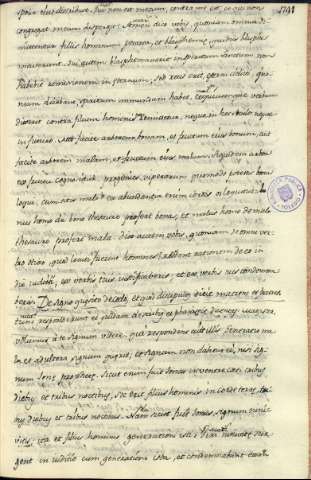 spolia eius diripiat. Qui non est mecum, contra me est, et qui non
congregat mecum dispergit. Amen dico vobis, quoniam omnia di-
mittentur filiis hominum peccata, et blasphemie quibus blasphe-
maverint. Qui autem blasphemaverit in spiritum sanctum non
habebit remissionem in eternum, sed reus erit eterni delicti, quo-
niam dicebant, spiritum immundum habet. Et quicumque verbum
dixerit contra filium hominis remittetur neque in hoc seculo neque
in futuro. Aut facite arborem bonam, et fructum eius bonum, aut
facite arborem malam, et fructum eius malum. Siquidem arbor
ex fructu cognoscitur. progenies viperarum quomodo potestis bona
loqui, cum sitis mali? ex abundantia enim cordis os loquitur. bo-
nus homo de bono thesauro profert bona, et malus homo de malo
thesauro profert mala. dico autem vobis, quoniam de omni ver-
bo otioso quod locuti fuerint homines, reddent rationem de eo in
die iudicii, ex verbis tuis iustificaberis, et ex verbis tuis condemna-
beris. De signo
tunc responderunt ei quidam de scribis et phariseis dicentes, magister,
volumus a te signum videre. qui respondens ait illis. Generatio ma-
la et adultera signum querit, et signum non dabitur ei, nisi sig-
num Ione prophete. Sicut enim fuit Ionas in ventre ceti tribus
diebus et tribus noctibus, sic erit filius hominis in corde terre tri-
bus diebus et tribus noctibus. Nam sicut fuit Ionas signum Ninivi-
vitis, ita et filius hominis generationi isti. Viri Ninivite sur-
gent in iudicio cum generatione ista, et condemnabunt eam